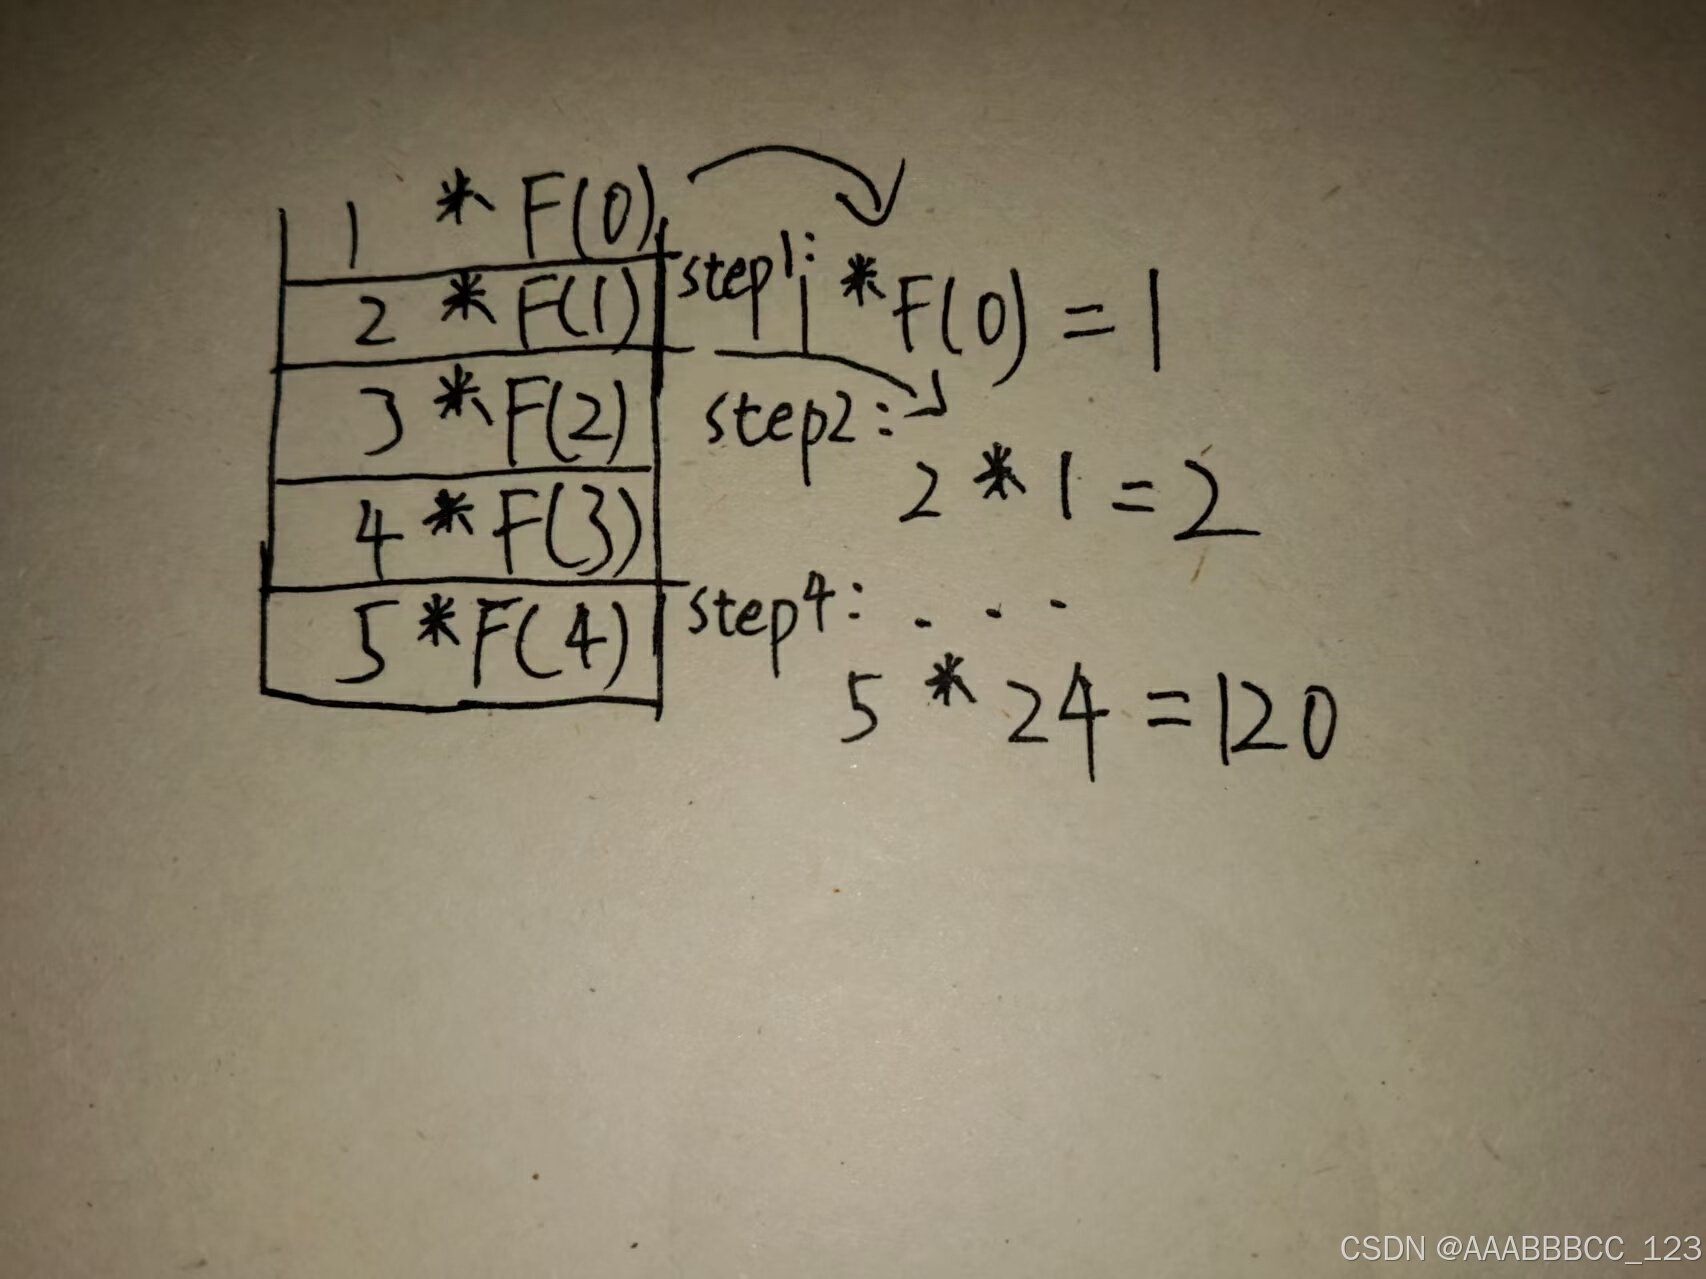 1 * F(0)
2 * F(1)
3 * F(2)
4 * F(3)
5 * F(4)
step1:
1 * F(0) = 1
step2:
2 * 1 = 2
step4: . . .
5 * 24 = 120
CSDN @AAABBBCC_123